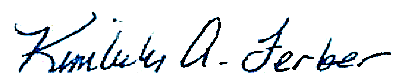 Kimberly A. Ferber